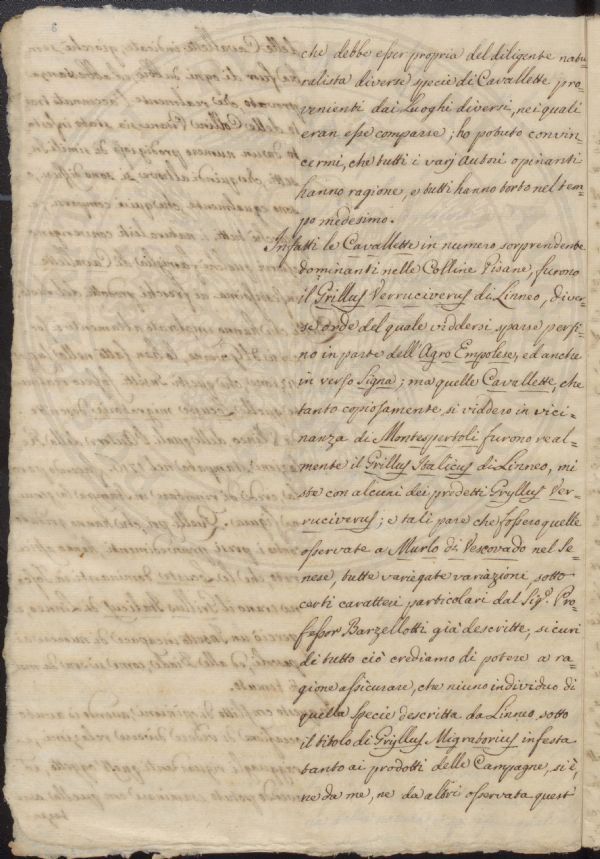 che debbe esser propria del diligente natu=
ralista diverse specie di Cavallette pro=
venienti dai Luoghi diversi, nei quali
eran esse comparse; ho potuto convin=
cermi, che tutti i varj Autori opinanti
hanno ragione, e tutti hanno torto nel tem=
po medesimo.
Infatti le Cavallette in numero sorprendente
dominanti nelle Colline Pisane, furono
il Grillus Verruciverus di Linneo, diver=
se orde del quale viddersi sparse perfi=
no in parte dell'Agro Empolese, ed anche
in verso Signa; ma quelle Cavallette, che
tanto copiosamente si viddero in vici=
nanza di Montespertoli furono real=
mente il Grillus Italicus di Linneo, mi
ste con alcuni dei predetti Gryllus Ver=
ruciverus; e tali pare che fossero quelle
osservate a Murlo di Vescovado nel Se=
nese, tutte variegate variazioni sotto
certi caratteri particolari dal Sigr. Pro=
fessor Barzellotti già descritte; sicuri
di tutto ciò crediamo di potere a ra=
gione assicurare, che niuno individuo di
quella specie descritta da Linneo, sotto
il titolo di Gryllus Migratorius infesta
tanto ai prodotti delle Campagne, si è,
ne da me, ne da altri osservata quest'